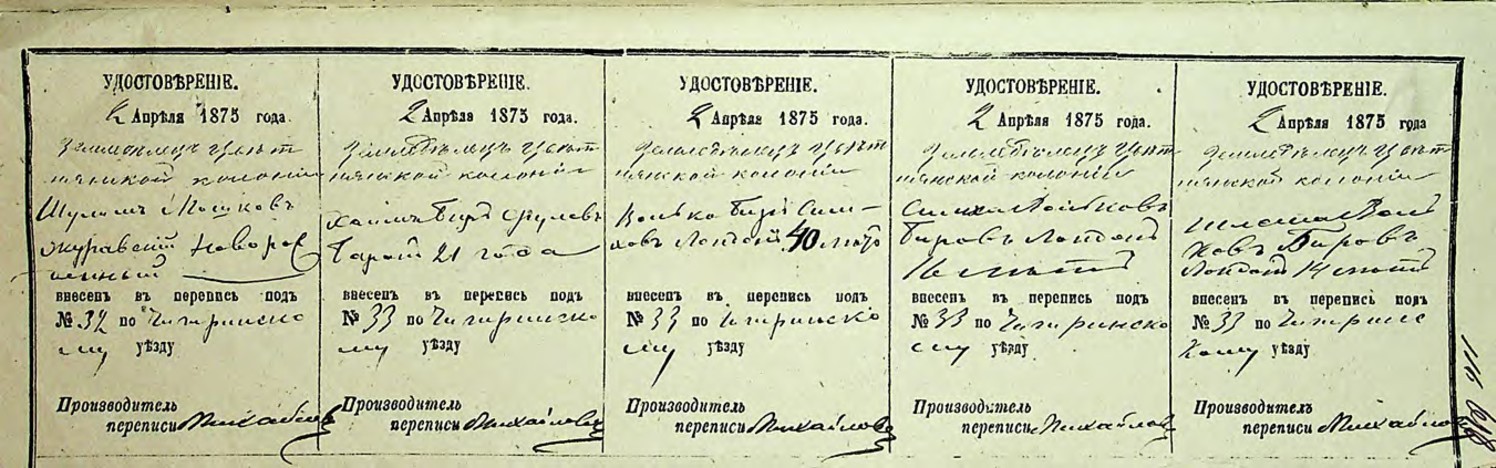 УДОСТОВѢРЕНІЕ.
2 Апрѣля 1875 года.
Земледѣлецъ Цвѣт
нянской колоніи
Шулимъ Мошковъ
Журавскій новорож
денный
внесенъ въ перепись подъ
№ 32 по Чигиринско
му уѣзду
Производитель
переписи Михайловъ
УДОСТОВѢРЕНІЕ.
2 Апрѣля 1875 года.
Земледѣлецъ Цвѣт
нянской колоніи
Хаимъ Беръ Срулевъ
21 года
внесенъ въ перепись подъ
№ 33 по Чигиринско
му уѣзду
Производитель
переписи Михайловъ
УДОСТОВѢРЕНІЕ.
2 Апрѣля 1875 года.
Земледѣлецъ Цвѣт
нянской колоніи
Волько Беръ Сим-
ховъ 40 лѣтъ
внесенъ въ перепись подъ
№ 33 по Чигиринско
му уѣзду
Производитель
переписи Михайловъ
УДОСТОВѢРЕНІЕ.
2 Апрѣля 1875 года.
Земледѣлецъ Цвѣт
нянской колоніи
Симха Вольковъ
Беровъ Лондонъ
16 лѣтъ
внесенъ въ перепись подъ
№ 33 по Чигиринско
му уѣзду
Производитель
переписи Михайловъ
УДОСТОВѢРЕНІЕ.
2 Апрѣля 1875 года
Земледѣлецъ Цвѣт
нянской колоніи
Шлема Воль
ковъ Беровъ
Лондонъ 14 лѣтъ
внесенъ въ перепись подъ
№ 33 по Чигиринс
кому уѣзду
Производитель
переписи Михайловъ